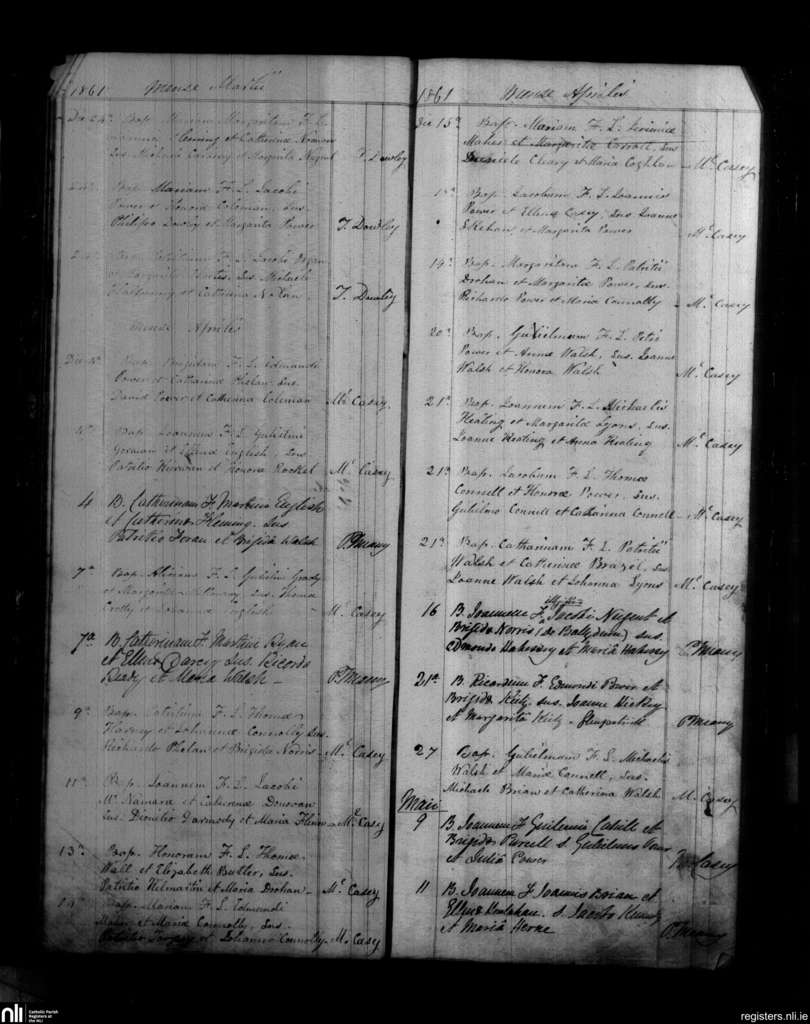 1861 Mense Martii
Die 24ª Bap. Mariam Margaritam F. L.
Fleming et Catherina
Sus. Michaele et Margarita Nugent T. Dowley
Bap. Mariam F. L. Jacobi
Power et Honora Coleman, Sus.
Philippo Dowley et Margarita Power T. Dowley
Bap. F. L. Jacobi
et Margarita Sus. Michaele
et Catherina Nolan T. Dowley
Mense Aprilis
Die Bap. Brigidam F. L. Edmundi
Power et Catherina Phelan, Sus.
David Power et Catherina Coleman Mr. Casey
Bap. Joannem F. L. Gulielmi
Gorman et English, Sus.
Patritio Kirwan et Honora Rocket Mr. Casey
4 B. Catherinam F. Martini English
et Catherina Fleming. Sus
Patritio Foran et Brigida Walsh P. Meany
7ª Bap. F. L. Gulielmi Grady
et Margarita Sus. Thoma
Crotty et Johanna English M. Casey
7ª B. Catherinam F. Martini Ryan
et Ellena Darcy Sus. Ricardo
Ready et Maria Walsh - P. Meany
9ª Bap. F. L. Thomæ
et Johannæ Connolly Sus.
Richardo Phelan et Brigida Norris - Mr. Casey
11ª Bap. Joannem F. L. Jacobi
McNamara et Catherinæ Donovan
Sus. Dionitio Darmody et Maria - Mr. Casey
13ª Bap. Honoram F. L. Thomæ
Wall et Elizabeth Butler, Sus.
Patritio Kilmartin et Maria Drohan - Mr. Casey
Bap. Mariam F. L. Edmundi
Maher et Maria Connolly, Sus.
Patritio et Johanna Connolly - M. Casey
1861 Mense Aprilis
Die 15ª Bap. Mariam F. L.
Maher et Margarita Carroll, Sus
Cleary et Maria Coghlan - Mr. Casey
Bap. Jacobum F. L. Joannis
Power et Ellena Casey, Sus Joanne
et Margarita Power Mr. Casey
14ª Bap. Margaritam F. L. Patritii
Drohan et Margarita Power, Sus.
Richardo Power et Maria Connolly - Mr. Casey
20ª Bap. Gulielmum F. L. Petri
Power et Anna Walsh, Sus. Joanne
Walsh et Honora Walsh Mr. Casey
21ª Bap. Joannem F. L. Michaelis
Keating et Margarita Lyons, Sus.
Joanne Keating et Anna Keating Mr. Casey
21ª Bap. Jacobum F. L. Thomæ
Connell et Honoræ Power, Sus.
Gulielmo Connell et Catharina Connell - Mr. Casey
21ª Bap. Catharinam F. L. Patritii
Walsh et Catherinæ Brazel, Sus
Joanne Walsh et Johanna Lyons Mr. Casey
16 B. Joannem F. Jacobi Nugent et
Brigida Norris (de Ballydurn) sus.
Edmondo et Maria P. Meany
21ª B. Ricardum F. Edmondi Power et
Brigida sus. Joanne Hickey
et Margarita - P. Meany
27 Bap. Gulielmum F. L. Michaelis
Walsh et Maria Connell, Sus.
Michaele Brian et Catherina Walsh M. Casey
Maii
9 B. Joannem F. Guilielmi Cahill et
Brigida Purcell S. Gulielmus Power
et Julia Power Mr. Casey
11 B. Joannem F. Joannis Brian et
Ellena S. Jacobo Kennedy
et Maria P. Meany
nli
Catholic Parish
Registers at
the NLI
registers.nli.ie